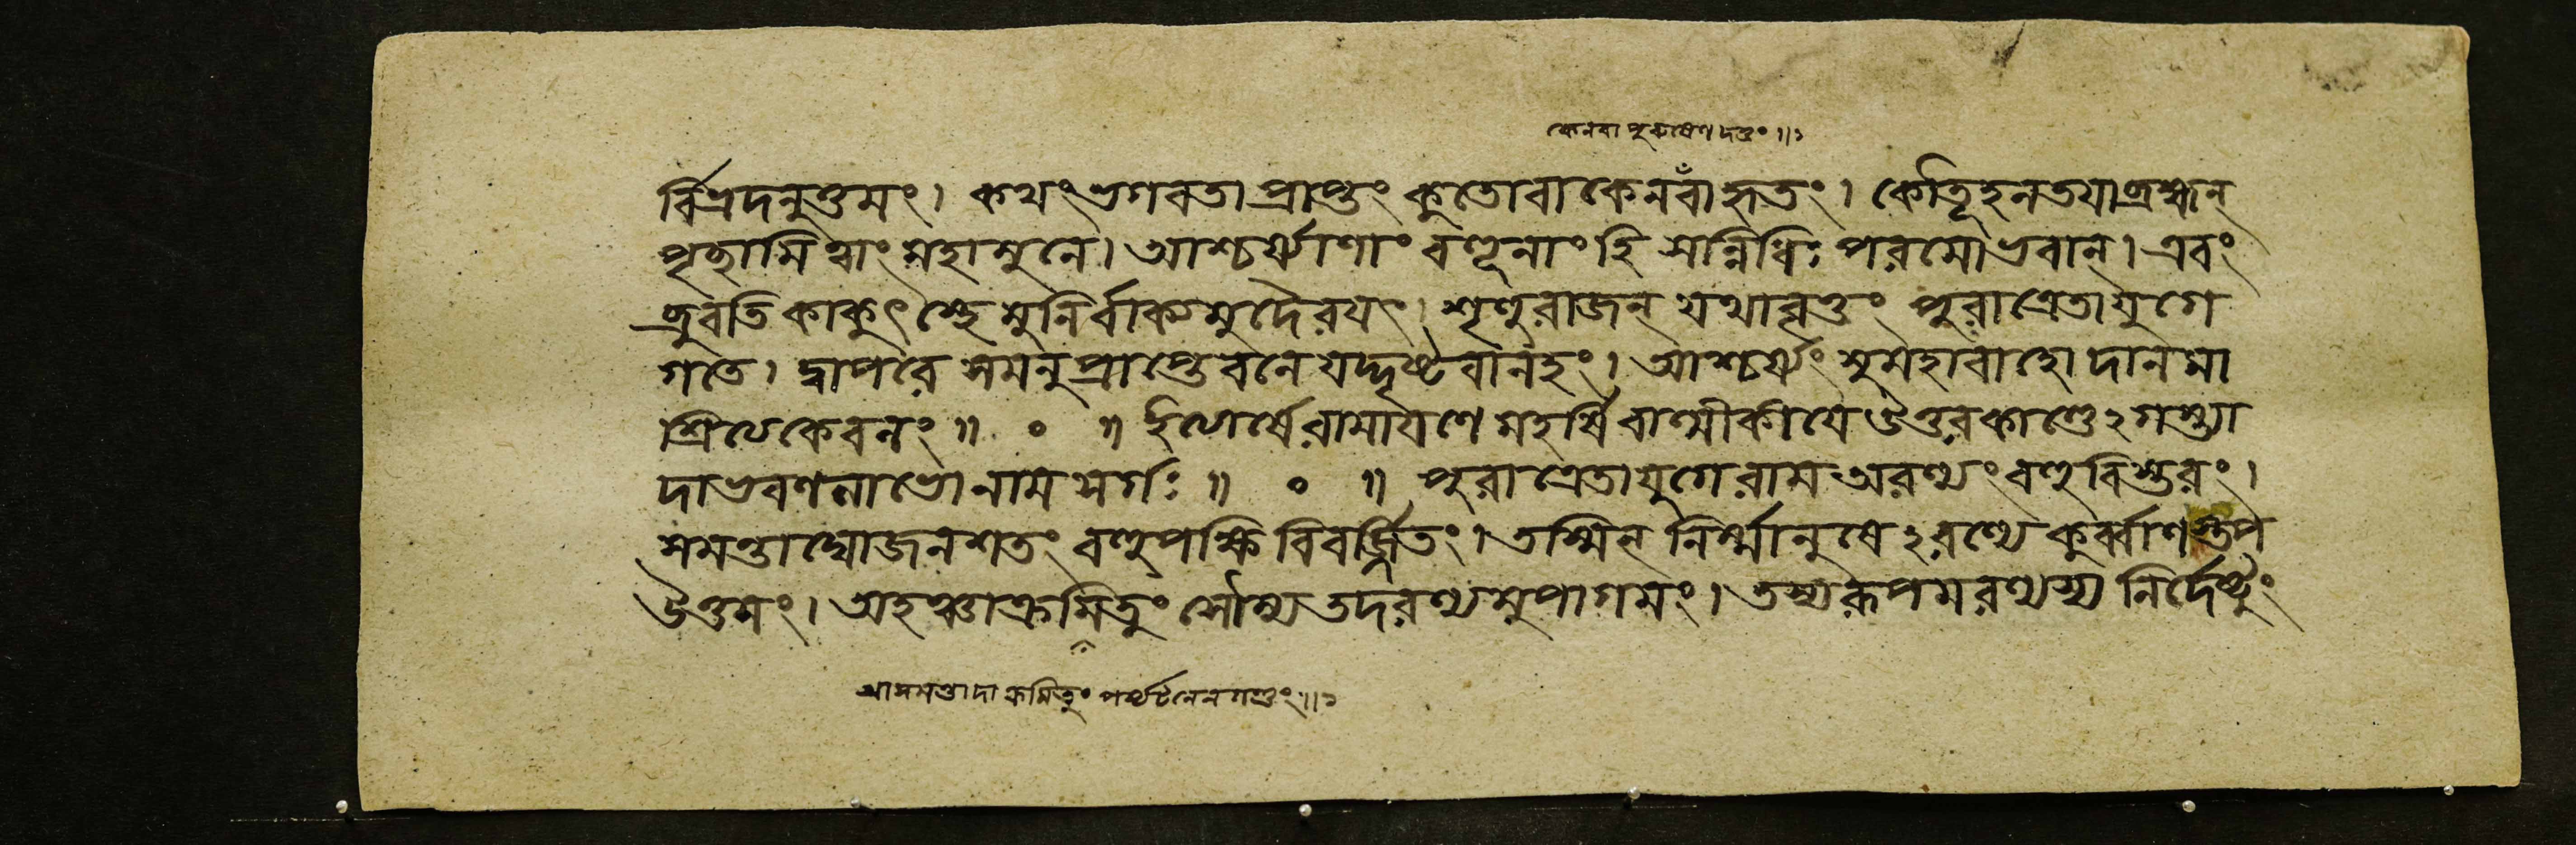 কেনবা পুরুষেণ দত্তং॥১
র্বিভ্রদনুত্তমং। কথংভগবতা প্রাপ্তং কুতোবাকেনবাঁহৃতং। কৌতূহলতয়াব্রহ্মন্
পৃচ্ছামি ত্বাং মহামুনে। আশ্চর্য্যাণাং বহূনাং হি সন্নিধিঃ পরমোভবান্। এবং
ব্রুবতি কাকুৎস্থে মুনির্বাক্যমুদৈরয়ৎ। শৃণুরাজন্ যথাবৃত্তং পুরাত্রেতাযুগে
গতে। দ্বাপরে সমনুপ্রাপ্তেবনে যদ্দৃষ্টবানহং। আশ্চর্য্যং সুমহাবাহো দানমা
শ্রিত্যকেবলং॥ ০ ॥ ইত্যার্ষেরামায়ণে মহর্ষিবাল্মীকীয়ে উত্তরকাণ্ডেঽগস্ত্যা
দাভরণলাভোনাম সর্গঃ॥ ০ ॥ পুরাত্রেতাযুগেরাম অরণ্যংবহুবিস্তরং।
সমন্তাদ্যোজনশতং বহুপক্ষিবিবর্জ্জিতং। তস্মিন্ নির্ম্মানুষেঽরণ্যে কুর্ব্বাণস্তপ
উত্তমং। অহঞ্চাক্রমিতুং সৌম্য তদরণ্যমুপাগমং। তস্যরূপমরণ্যস্য নির্দেষ্টুং
আসমন্তাদাক্রমিতুং পর্য্যটনেনগন্তুং॥১